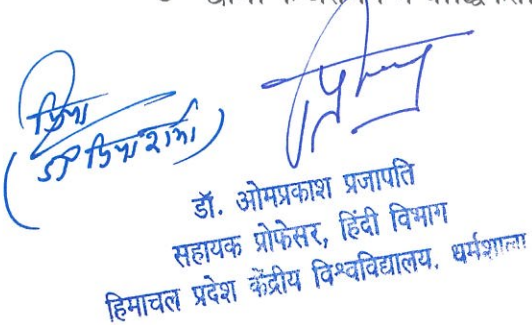 डॉ. प्रिया शर्मा
डॉ. ओमप्रकाश प्रजापति
सहायक प्रोफेसर, हिंदी विभाग
हिमाचल प्रदेश केंद्रीय विश्वविद्यालय, धर्मशाला